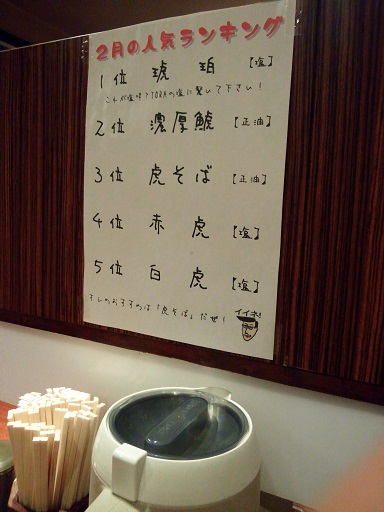 2月の人気ランキング
1位 琥珀 【塩】
これが塩味?TORAの塩に驚して下さい!
2位 濃厚鯱 【正油】
3位 虎そば 【正油】
4位 赤虎 【塩】
5位 白虎 【塩】
オレのおススメは「虎そば」だぜ!
イイネ!